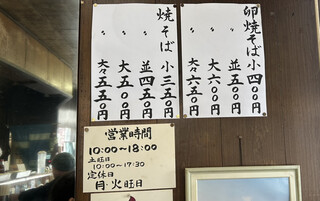 卵焼そば小四〇〇円
〃 並五〇〇円
〃 大六〇〇円
〃 大々六五〇円
焼そば 小三五〇円
〃 並四五〇円
〃 大五〇〇円
〃 大々五五〇円
営業時間
10:00~18:00
土曜日
10:00~17:30
定休日
月・火曜日